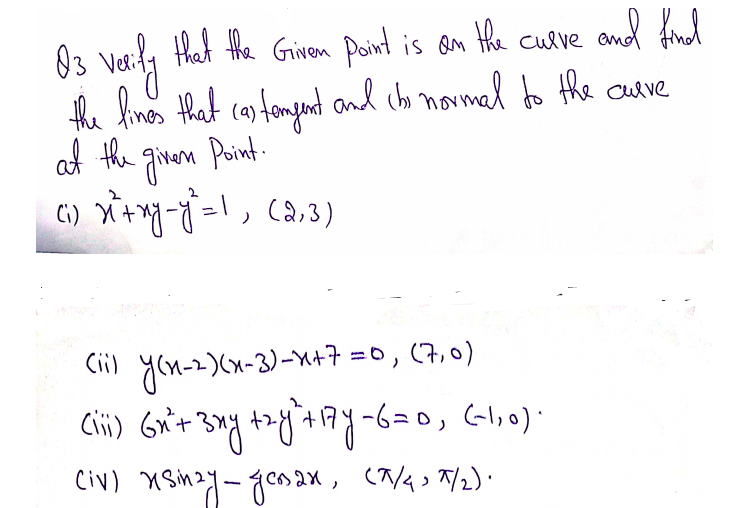 Q3 Verify that the Given Point is on the curve and find
the lines that (a) tangent and (b) normal to the curve
at the given Point.
(i) x²+xy-y²=1, (2,3)
(ii) y(x-2)(x-3)-x+7=0, (7,0)
(iii) 6x²+3xy+2y²+17y-6=0, (-1,0).
(iv) x Sin2y - y cos 2x, (π/4, π/2).